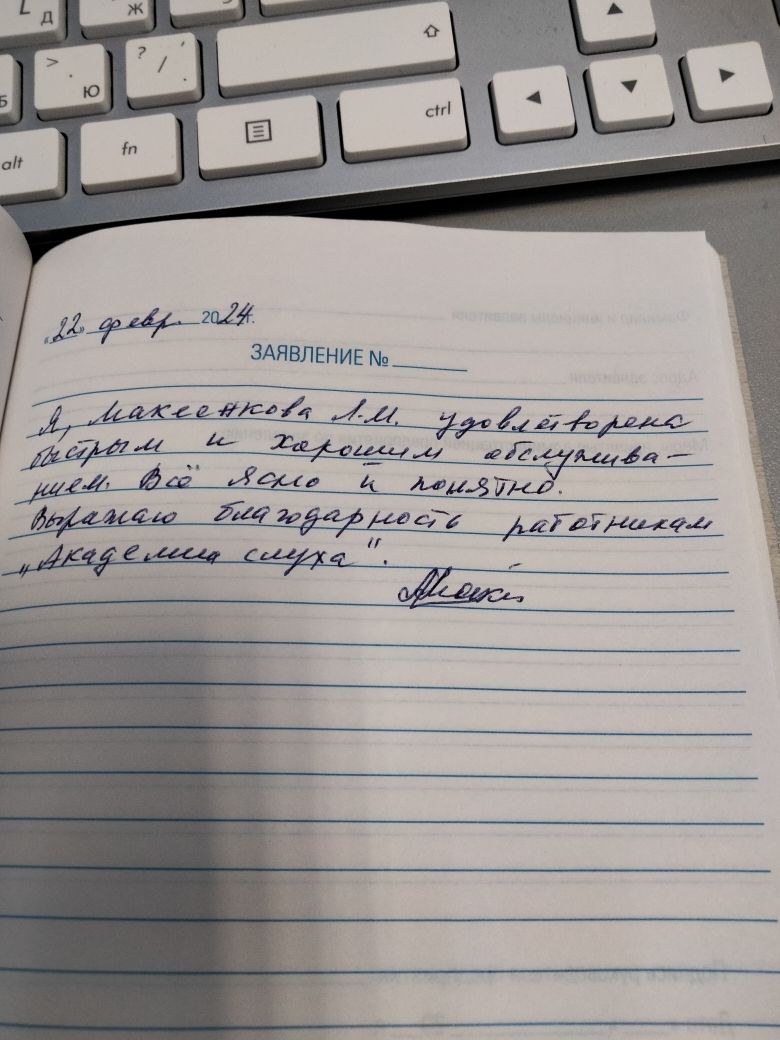 Д
Ж
Б
> .
Ю
? /
' .
alt
fn
ctrl
«22» февр. 2024г.
ЗАЯВЛЕНИЕ №
Я, Максенкова Л.М. удовлетворена
быстрым и хорошим обслужива-
нием. Всё ясно и понятно.
Выражаю благодарность работникам
„Академиа слуха".